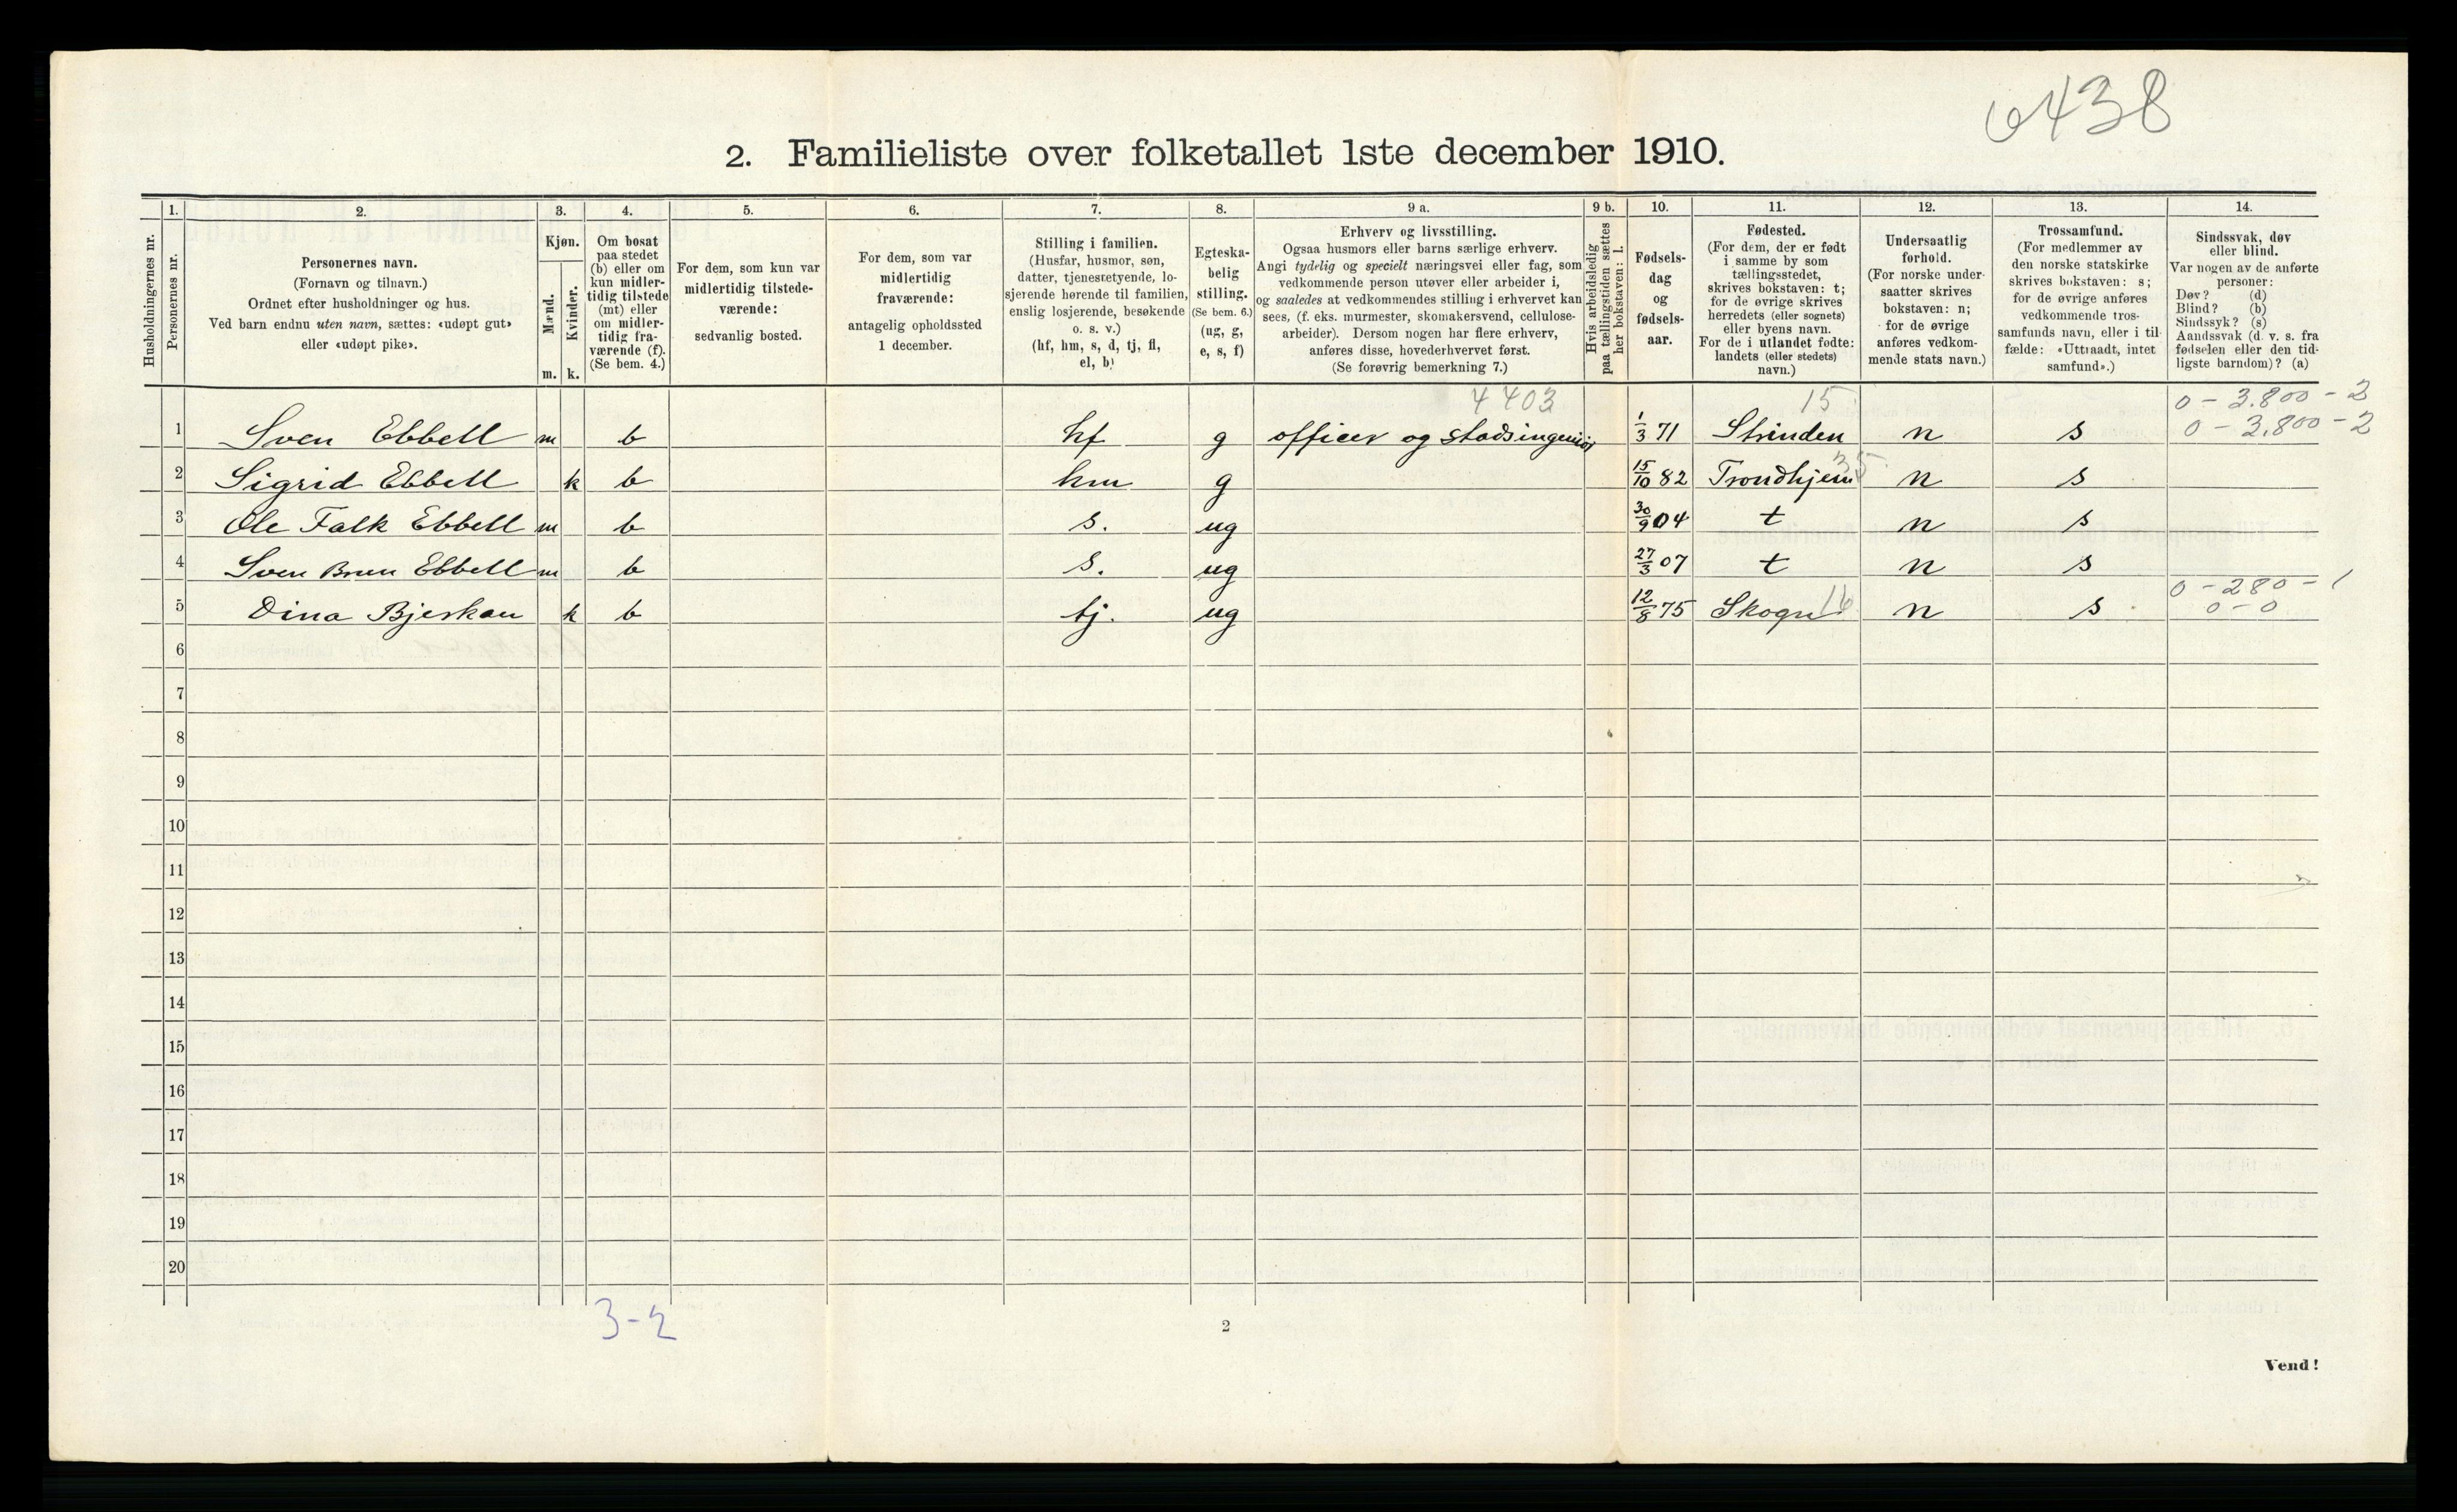 6438
2. Familieliste over folketallet 1ste december 1910.
Husholdningernes nr.
1.
Personernes nr.
2.
Personernes navn.
(Fornavn og tilnavn.)
Ordnet efter husholdninger og hus.
Ved barn endnu uten navn, sættes: «udøpt gut»
eller «udøpt pike».
3.
Kjøn.
Mænd.
m.
Kvinder.
k.
4.
Om bosat
paa stedet
(b) eller om
kun midler-
tidig tilstede
(mt) eller
om midler-
tidig fra-
værende (f).
(Se bem. 4.)
5.
For dem, som kun var
midlertidig tilstede-
værende:
sedvanlig bosted.
6.
For dem, som var
midlertidig
fraværende:
antagelig opholdssted
1 december.
7.
Stilling i familien.
(Husfar, husmor, søn,
datter, tjenestetyende, lo-
sjerende hørende til familien,
enslig losjerende, besøkende
o. s. v.)
(hf, hm, s, d, tj, fl,
el, b)
8.
Egteska-
belig
stilling.
(Se bem. 6.)
(ug, g,
e, s, f)
9 a.
Erhverv og livsstilling.
Ogsaa husmors eller barns særlige erhverv.
Angi tydelig og specielt næringsvei eller fag, som
vedkommende person utøver eller arbeider i,
og saaledes at vedkommendes stilling i erhvervet kan
sees, (f. eks. murmester, skomakersvend, cellulose-
arbeider). Dersom nogen har flere erhverv,
anføres disse, hovederhvervet først.
(Se forøvrig bemerkning 7.)
9 b.
Hvis arbeidsledig
paa tællingstiden sættes
her bokstaven: l.
10.
Fødsels-
dag
og
fødsels-
aar.
11.
Fødested.
(For dem, der er født
i samme by som
tællingsstedet,
skrives bokstaven: t;
for de øvrige skrives
herredets (eller sognets)
eller byens navn.
For de i utlandet fødte:
landets (eller stedets)
navn.)
12.
Undersaatlig
forhold.
(For norske under-
saatter skrives
bokstaven: n;
for de øvrige
anføres vedkom-
mende stats navn.)
13.
Trossamfund.
(For medlemmer av
den norske statskirke
skrives bokstaven: s;
for de øvrige anføres
vedkommende tros-
samfunds navn, eller i til-
fælde: «Uttraadt, intet
samfund».)
14.
Sindssvak, døv
eller blind.
Var nogen av de anførte
personer:
Døv? (d)
Blind? (b)
Sindssyk? (s)
Aandssvak (d. v. s. fra
fødselen eller den tid-
ligste barndom)? (a)
4403 15 0 - 3.800 - 2
1 Sven Ebbell m b hf g officer og stadsingeniør 1/3 71 Strinden n s 0 - 3.800 - 2
2 Sigrid Ebbell k b hm g 15/10 82 Trondhjem 35 n s
3 Ole Falk Ebbell m b s. ug 30/9 04 t n s
4 Sven Brun Ebbell m b s. ug 27/3 07 t n s
0 - 280 - 1
5 Dina Bjerkan k b tj. ug 12/8 75 Skogn 16 n s 0 - 0
6
7
8
9
10
11
12
13
14
15
16
17
18
19
20
3-2
2
Vend!